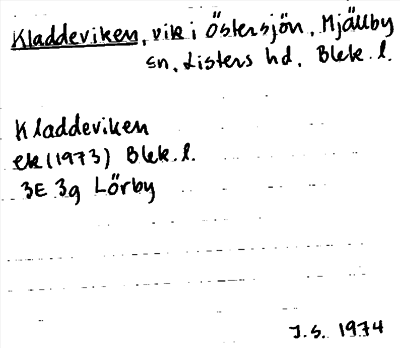 Kladdeviken, vik i Östersjön, Mjällby
sn, Listers hd, Blek. l.
Kladdeviken
ek (1973) Blek. l.
3E 3g Lörby
J.S. 1974